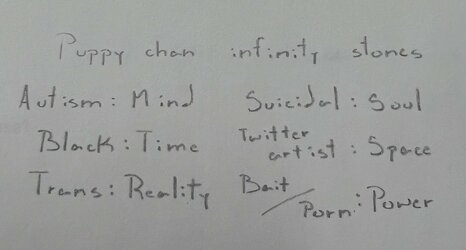 Puppy chan infinity stones
Autism: Mind
Suicidal: Soul
Black: Time
Twitter artist: Space
Trans: Reality
Bait/Porn: Power